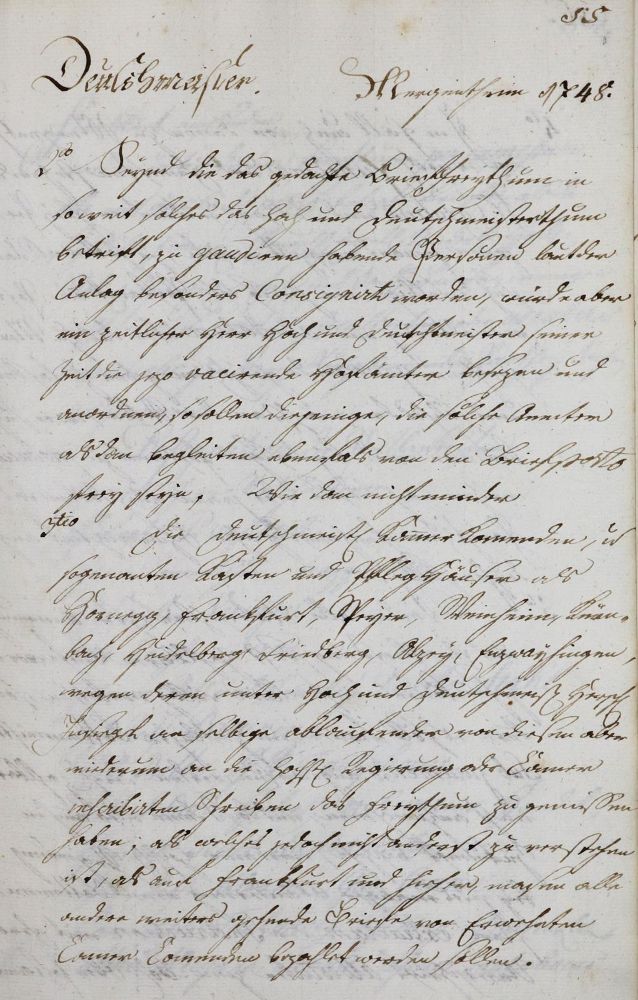 55
Deutschmeister. Mergentheim 1748.
2do Seynd die das gedachte Brieffreythum in
soweit solches das Hoch und Deutschmeisterthum
betrifft, zu gaudiren habende Personen laut der
Anlag besonders Consignirt worden, würde aber
ein zeitlicher Herr Hoch und Deutschmeister seiner
Zeit die jezo vacirende Hofämter besezen und
anordnen, so sollen diejenige, die solche Aemter
alsdan begleiten ebenfals von dem Briefporto
frey seyn, Wie dan nicht minder
3tio Die Deutschmeist. Kamer Komenden, u
sogenanten Kästen und Pfleg Häuser als
Hornegg, Franckfurt, Speyer, Weinheim, Kürn-
bach, Heidelberg, Friedberg, Alzey, Enzwayhingen,
wegen deren unter Hoch und Deutschmeist.
Insiegl an selbige ablaufender von diesen aber
wiederum an die Regierung oder Camer
inscribirten Schreiben das Freythum zu geniessen
haben; als welches jedoch nicht anderst zu verstehen
ist, als auf Franckfurt und hieher, masen alle
andere weiters gehende Briefe von Erwehnten
Camer Comenden bezahlet werden sollen.